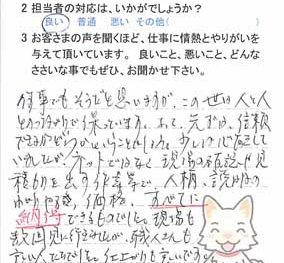 2 担当者の対応は、いかがでしょうか?
良い 普通 悪い その他( )
3 お客さまの声を聞くほど、仕事に情熱とやりがいを
与えて頂いています。 良いこと、悪いこと、どんな
ささいな事でもぜひ、お聞かせ下さい。
仕事でもそうだと思いますが、この世は人と人
とのつながりで保っています。よって、元ずは、信頼
できるかどうかということでしょう。
ネットではなく現場の確認や見
積りを出す作業等で、人柄、説明の
わかりやすさ、価格、すべてに
納得できるものでした。現場も
数回見に行きましたが、職人さんも